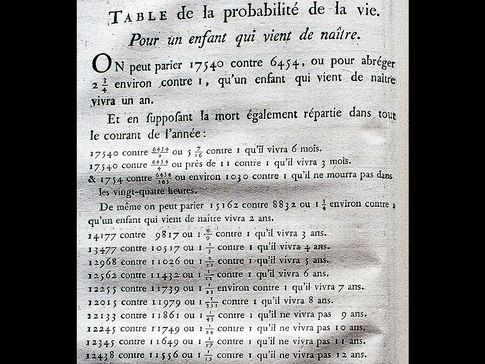 TABLE de la probabilité de la vie.
Pour un enfant qui vient de naître.
ON peut parier 17540 contre 6454, ou pour abréger
2 3/4 environ contre 1, qu'un enfant qui vient de naitre
vivra un an.
Et en supposant la mort également répartie dans tout
le courant de l'année :
17540 contre 6454/2 ou 5 7/16 contre 1 qu'il vivra 6 mois.
17540 contre ou près de 11 contre 1 qu'il vivra 3 mois.
& 1754 contre ou environ 1030 contre 1 qu'il ne mourra pas dans
les vingt-quatre heures.
De même on peut parier 15162 contre 8832 ou 1 3/4 environ contre 1
qu'un enfant qui vient de naitre vivra 2 ans.
14177 contre 9817 ou 1 contre 1 qu'il vivra 3 ans.
13477 contre 10517 ou 1 contre 1 qu'il vivra 4 ans.
12968 contre 11026 ou 1 contre 1 qu'il vivra 5 ans.
12562 contre 11432 ou 1 contre 1 qu'il vivra 6 ans.
12255 contre 11739 ou 1 environ contre 1 qu'il vivra 7 ans.
12015 contre 11979 ou 1 contre 1 qu'il vivra 8 ans.
12133 contre 11861 ou 1 contre 1 qu'il ne vivra pas 9 ans.
12245 contre 11749 ou 1 contre 1 qu'il ne vivra pas 10 ans.
12345 contre 11649 ou 1 contre 1 qu'il ne vivra pas 11 ans.
12438 contre 11556 ou 1 contre 1 qu'il ne vivra pas 12 ans.